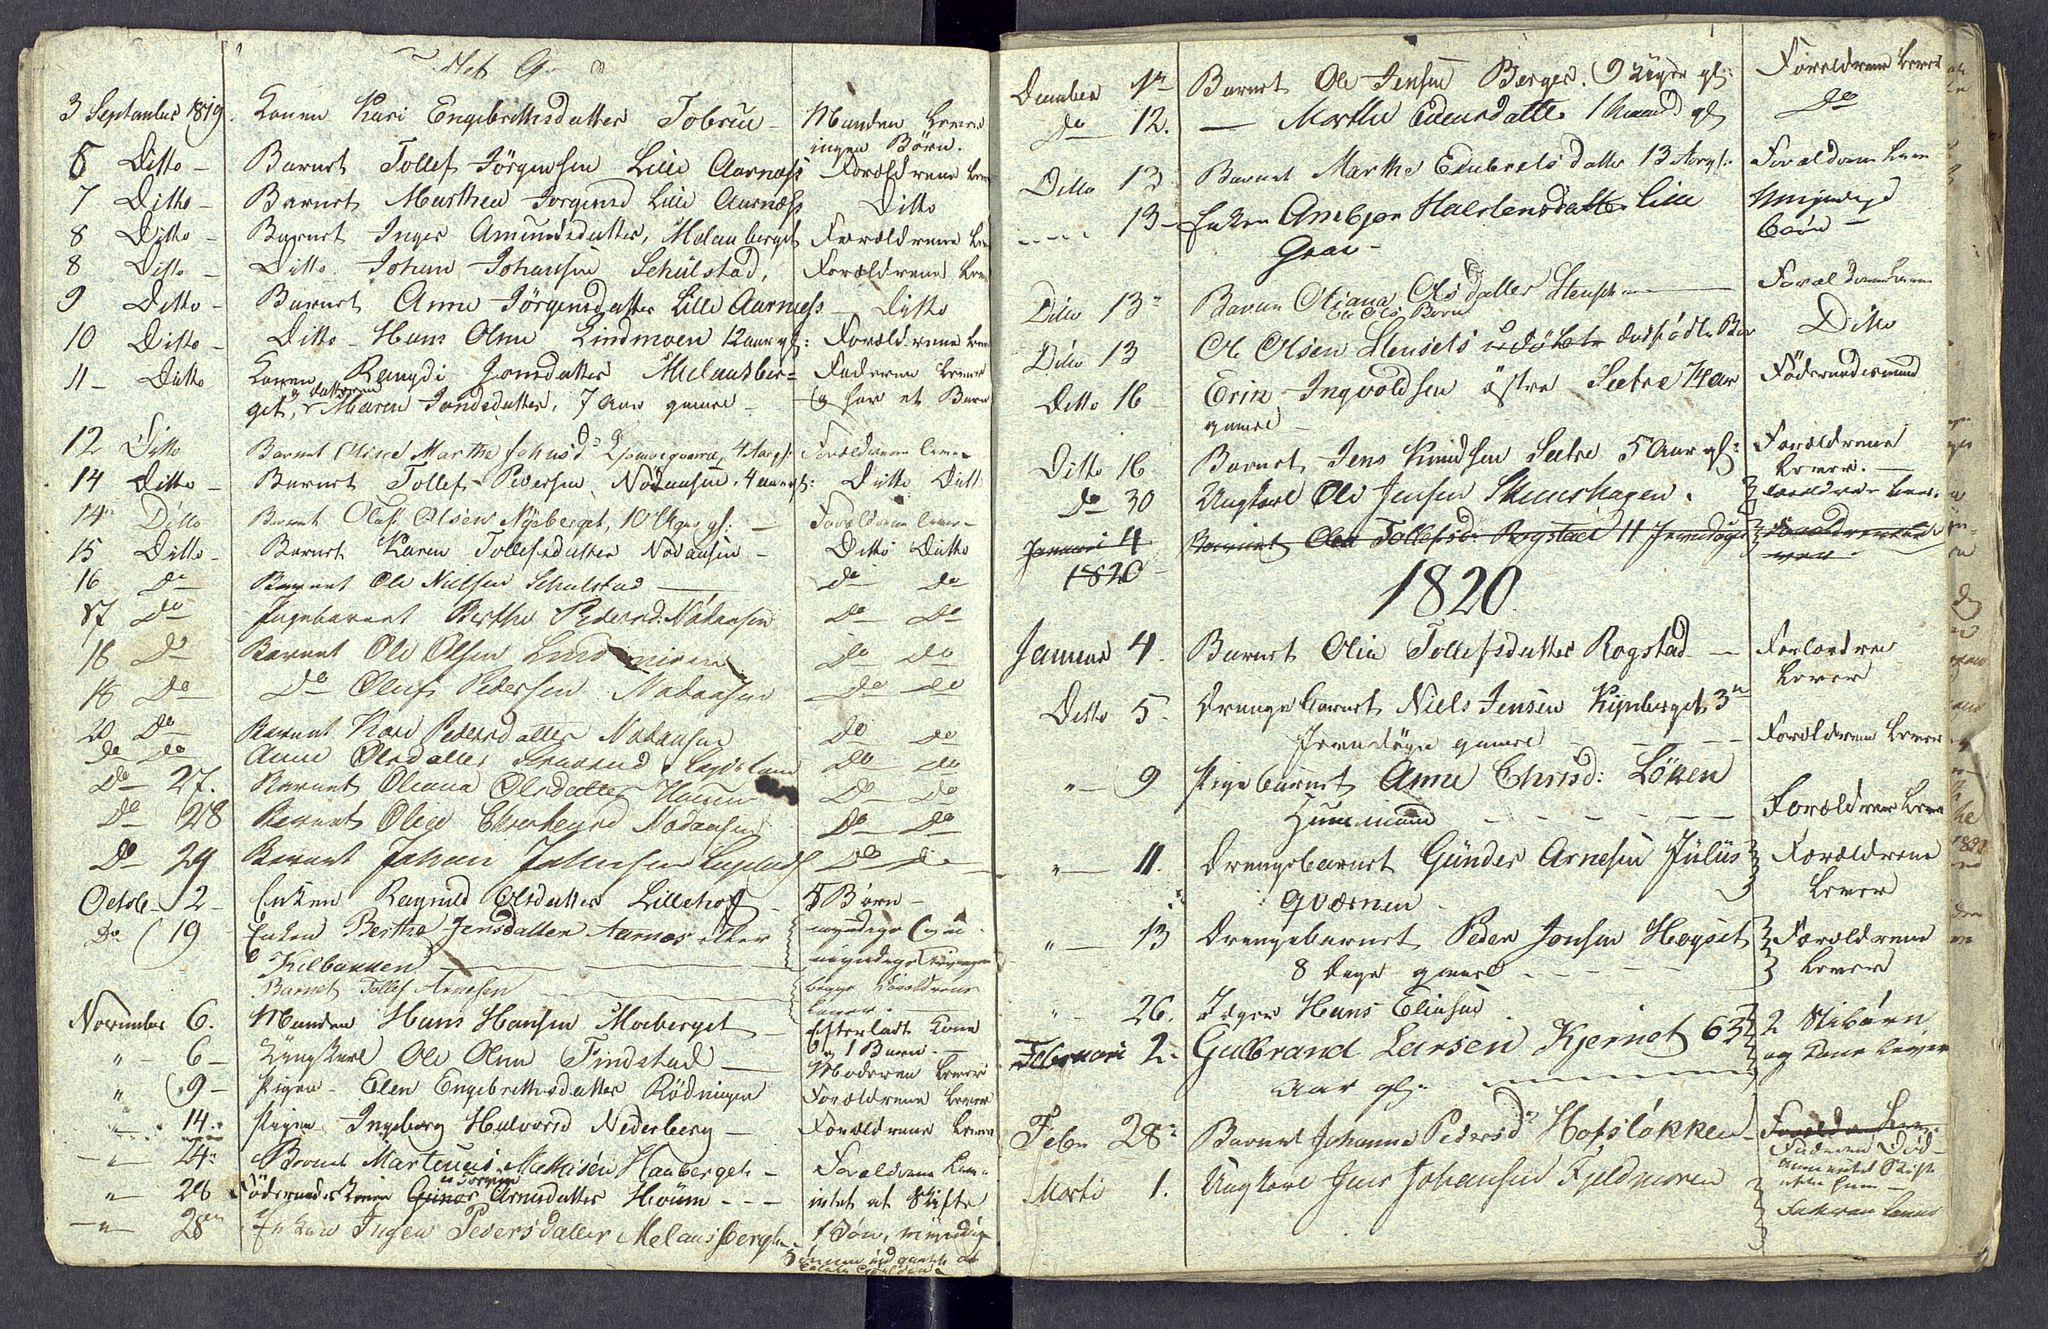 3 September 1819. Konen Kari Engebrethsdatter Tobrue - Manden Lever
ingen Børn.
5 Ditto - Barnet Tollef Jörgensen Lille Aarnæss Forældrene Lever
7 Ditto - Barnet Marthea Jörgensd Lille Aarnæss Ditto
8 Ditto - Barnet Inger Amundsdatter, Melauberget Forældrene Lever
8 Ditto - Ditto Johan Johansen Schulstad, Forældrene Lever
9 Ditto - Barnet Anne Jörgensdatter Lille Aarnæss - Ditto
10 Ditto - Ditto - Hans Olsen Lindmoen 12 aar gl: Forældrene Lever
11 - Ditto Konen Rangdi Jonsdatter Melausber= Faderen Lever
og datteren
get, Maren Jonsdatter, 7 Aar gamel - og har et Barn
12 Ditto Barnet Marthe Johnsd 4 Aar gl: Forældrene lever
14 Ditto - Barnet Tollef Pedersen Nödaasen, 4 aar gl: Ditto Ditto
14 Ditto Barnet Oluf Olsen Nyeberget, 10 Uger gl: - Forældrene lever
15 Ditto - Barnet Karen Tollefsdatter Nodaasen - Ditto Ditto
16 Do Barnet Ole Nielsen Schulstad - Do Do
17 Do Pigebarnet Berthe Pedersd: Nödaasen Do Do
18 Do Barnet Ole Olsen Do Do
18 Do Do Oluf Pedersen Nodaasen Do Do
20 Do Barnet Kari Pedersdatter Nodaasen Do Do
Do Do Anne Olsdatter Do Do
Do 27. Barnet Oleana Olsdatter Do Do
Do 28 Barnet Olia Nodaasen Do Do
Do 29 Barnet Johan Johnsen Do Do
Octob 2 - Enken Ragnild Olsdatter Lillehof - 5 Børn -
Do 19 Enken Berthe Jensdatter Aarnæs eller myndige
Kilbakken umyndige
Barnet Tollef Arnesen begge Forældrene
lever.
November 6. Manden Hans Hansen Moeberget - Efterladt Kone
og 1 Barn.
" 6 - Ungkarl Ole Olsen Findstad - Moderen Lever
" 9 - Pigen - Elen Engebrethsdatter Rödningen Forældrene Lever
" 14. Pigen Ingeborg Halvorsd Nederberg - Forældrene Lever
" 24 Barnet Martinus Mathisen Hauberget - Forældrene Lev
" 28 Föderaadskonen Arnesdatter Höüm - - - intet at Skifte
" 28 Enken Ingen Pedersdatter Melausberget 1 Søn, myndig
December Barnet Ole Jensen Berger. (9 Uger gl: Forældrene Lever
Do 12. - Marthe Evensdatter 1 Maaned gl Do
Ditto 13 Barnet Marthe Embretsdatter 13 Aar gl: Forældrene Lever
13 - Enken Anebjør Halstensdatter Lille Umyndige
Graae - Børn -
Ditto 13 Barnet Oliana Olsdatter Stensch Forældrene Lever
Ditto 13 Ole Olsen Stensets udöbt dødfødt Bar Ditto
Ditto 16 Erik Ingvoldsen östre Sætre 74 aar Föderaadsmand
gamel -
Ditto 16 Barnet Jens Knudsen Sætre 5 Aar gl: Forældrene
Lever. -
Do 30 Ungkarl Ole Jensen Skaershagen. Forældrene Lever.
Januari 4 Barnet Olea Tollefsd: Rogstad 11 Jevndögn Forældrene Le
1820 - ver.
1820
Januar 4. Barnet Olia Tollefsdatter Rogstad - Forlædrene
Lever
Ditto 5. Drengebarnet Niels Jensen Kynberget 3
Jevndögn gamel - Forældrene Lever
" 9 Pigebarnet Anne Chrisd: Löken
Huusmand - - - Forældrene Lever
" 11. Drengebarnet Günder Arnesen Jülüs Forældrene
qværnen - Lever
" 13 Drengebarnet Peder Jonsen Høyset Forældrene
8 Dage gamel - - - Lever
" 26. Jæger Hans Eliasen
Februari 2. Gulbrand Larsen Kjernet 63 2 Stibørn
Aar gl. og Kone Lever
Febr 28 Barnet Johanne Pedersd Hofsløkken - Forældrene Lever
Faderen Død
Marti 1. Ungkarl Jens Johansen Fjeldmoren Faderen Lever